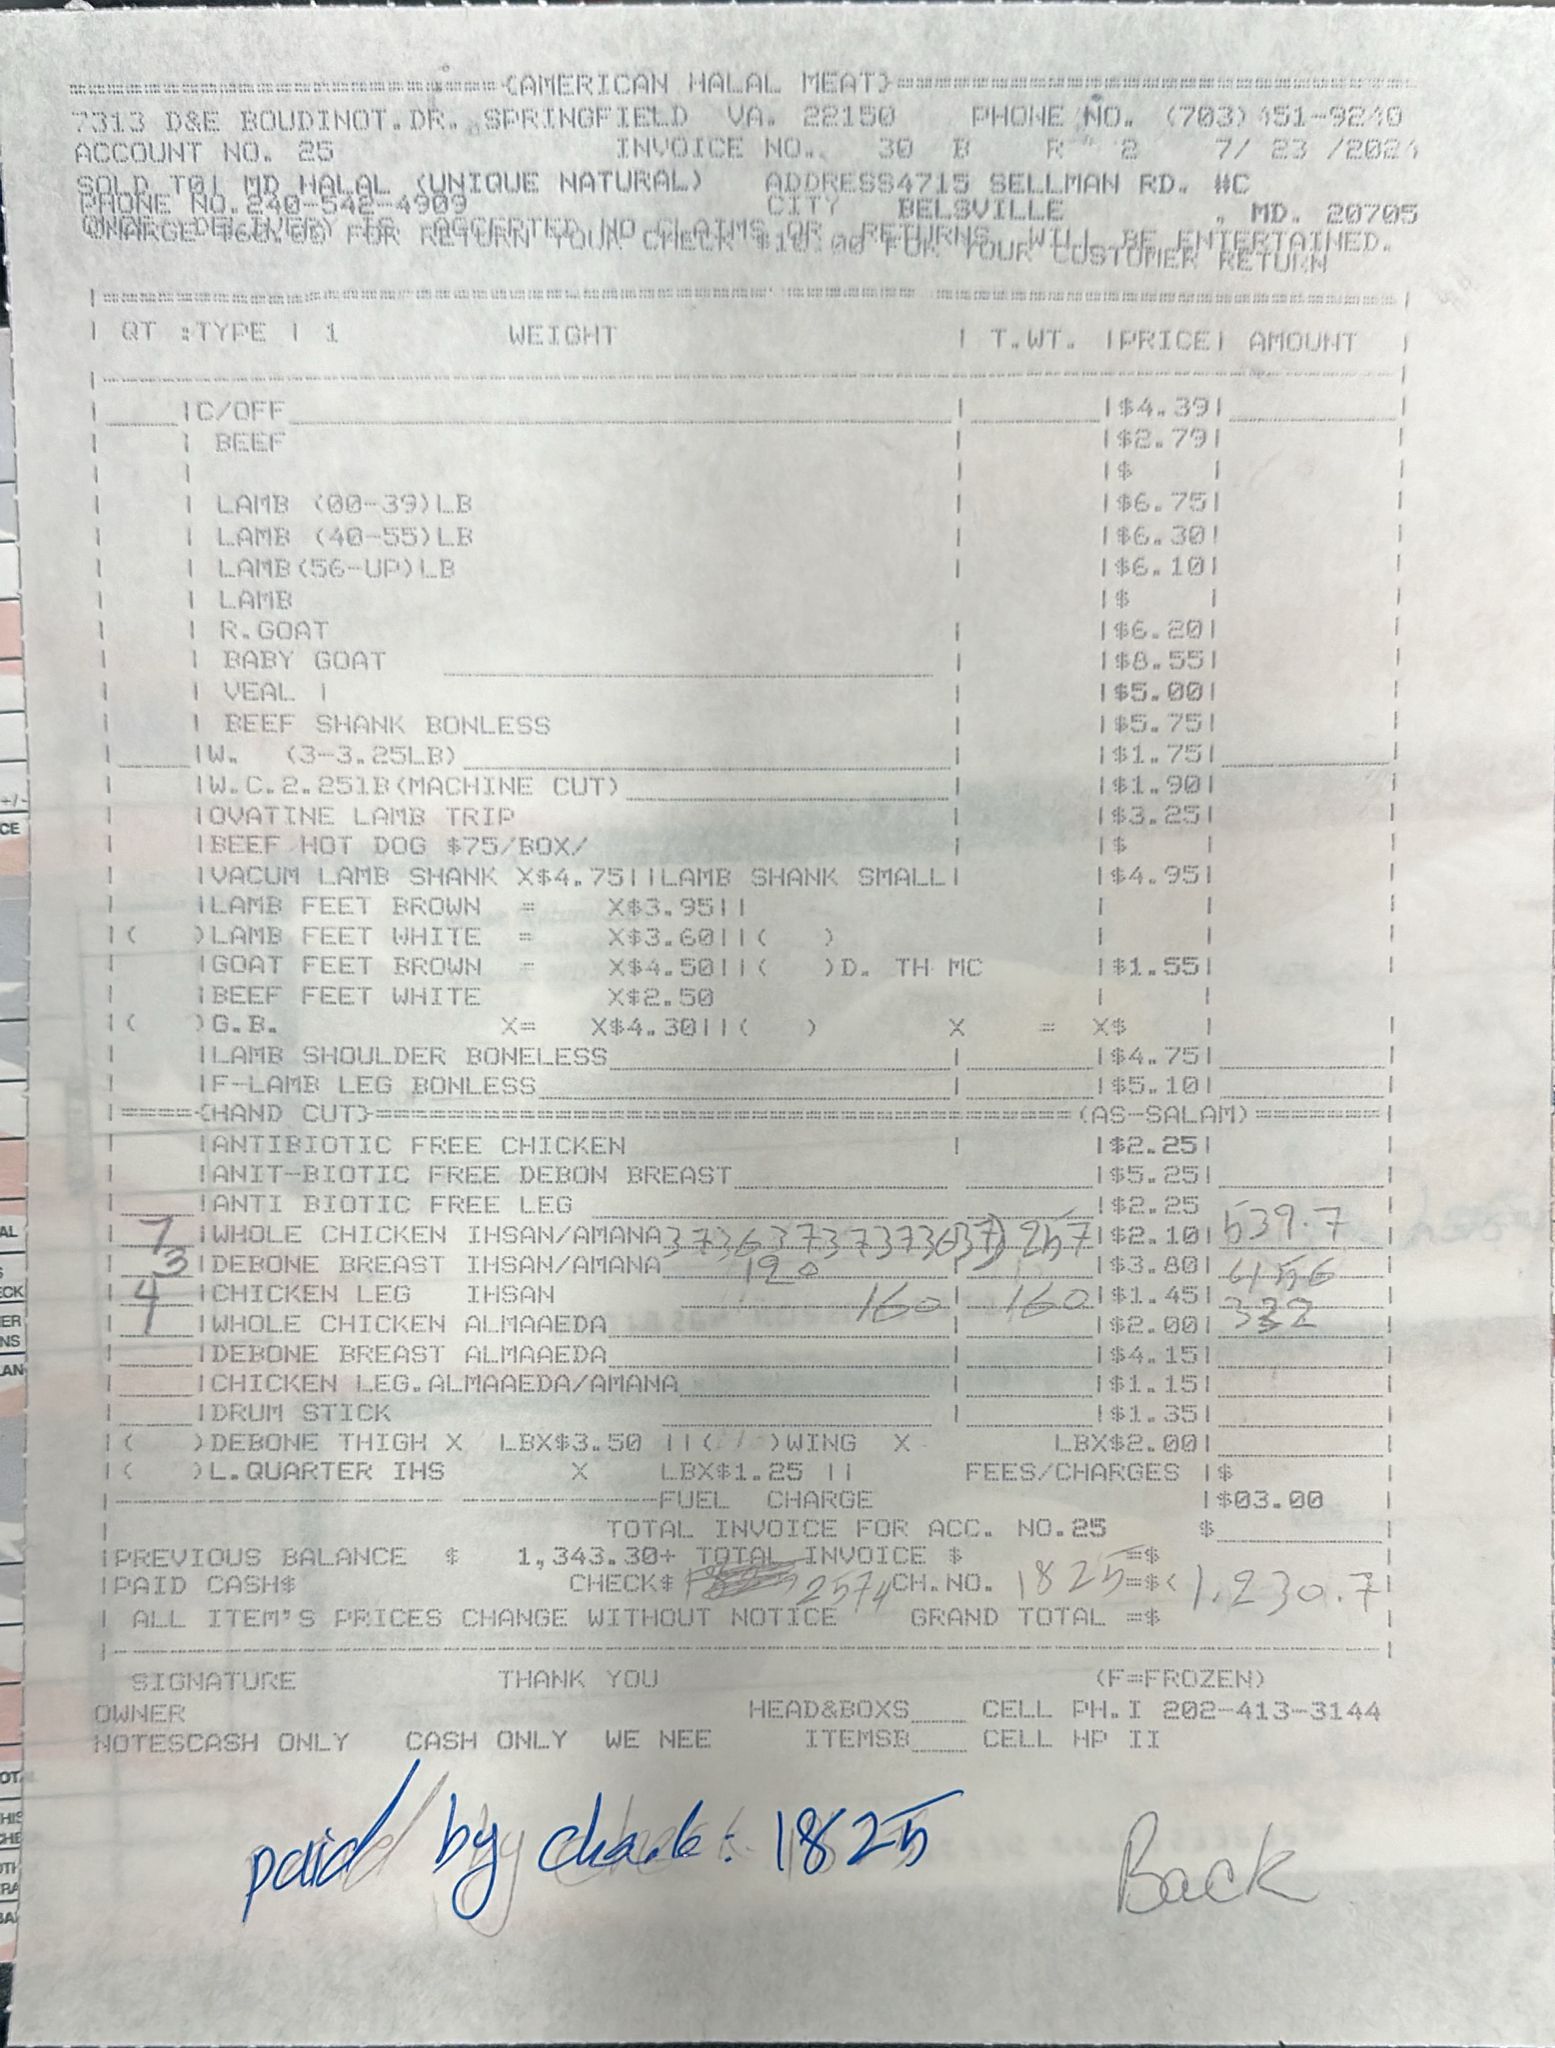 (AMERICAN HALAL MEAT)
7313 D&E BOUDINOT.DR. SPRINGFIELD VA. 22150 PHONE NO. (703)451-9240
ACCOUNT NO. 25 INVOICE NO.. 30 B R 2 7/ 23 /2024
SOLD TO| MD HALAL (UNIQUE NATURAL) ADDRESS4715 SELLMAN RD. #C
PHONE NO.240-542-4909 CITY BELSVILLE , MD. 20705
ONCE DELIVERY IS ACCEPTED NO CLAIMS OR RETURNS WILL BE ENTERTAINED.
FOR RETURN YOUR CHECK FOR YOUR CUSTOMER RETURN
| QT :TYPE | 1 WEIGHT | T.WT. |PRICE| AMOUNT |
|C/OFF |$4.39|
| BEEF |$2.79|
|$ |
| LAMB (00-39)LB |$6.75|
| LAMB (40-55)LB |$6.30|
| LAMB(56-UP)LB |$6.10|
| LAMB |$ |
| R.GOAT |$6.20|
| BABY GOAT |$8.55|
| VEAL | |$5.00|
| BEEF SHANK BONLESS |$5.75|
|W. (3-3.25LB) |$1.75|
|W.C.2.25lB(MACHINE CUT) |$1.90|
|OVATINE LAMB TRIP |$3.25|
|BEEF HOT DOG $75/BOX/ |$ |
|VACUM LAMB SHANK X$4.75||LAMB SHANK SMALL| |$4.95|
|LAMB FEET BROWN = X$3.95||
|( )LAMB FEET WHITE = X$3.60||( )
|GOAT FEET BROWN = X$4.50||( )D. TH MC |$1.55|
|BEEF FEET WHITE X$2.50
|( )G.B. X= X$4.30||( ) X = X$ |
|LAMB SHOULDER BONELESS |$4.75|
|F-LAMB LEG BONLESS |$5.10|
|=====(HAND CUT)=====(AS-SALAM)=====|
|ANTIBIOTIC FREE CHICKEN |$2.25|
|ANIT-BIOTIC FREE DEBON BREAST |$5.25|
|ANTI BIOTIC FREE LEG |$2.25
7 |WHOLE CHICKEN IHSAN/AMANA 37363737373637 257 |$2.10| 539.7
3 |DEBONE BREAST IHSAN/AMANA 120 |$3.80| 456
4 |CHICKEN LEG IHSAN 160 | 160 |$1.45| 332
|WHOLE CHICKEN ALMAAEDA |$2.00|
|DEBONE BREAST ALMAAEDA |$4.15|
|CHICKEN LEG.ALMAAEDA/AMANA |$1.15|
|DRUM STICK |$1.35|
|( )DEBONE THIGH X LBX$3.50 ||( )WING X LBX$2.00|
|( )L.QUARTER IHS X LBX$1.25 || FEES/CHARGES |$
FUEL CHARGE |$03.00
TOTAL INVOICE FOR ACC. NO.25 $
|PREVIOUS BALANCE $ 1,343.30+ TOTAL INVOICE $ =$
|PAID CASH$ CHECK$ 2574 CH.NO. 1825 =$< 1,230.7
| ALL ITEM'S PRICES CHANGE WITHOUT NOTICE GRAND TOTAL =$
SIGNATURE THANK YOU (F=FROZEN)
OWNER HEAD&BOXS CELL PH.I 202-413-3144
NOTESCASH ONLY CASH ONLY WE NEE ITEMSB CELL HP II
paid by chack: 1825
Back